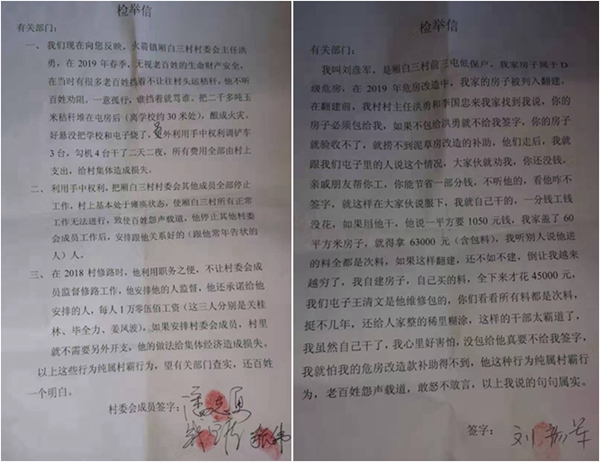 检举信
有关部门：
一、我们现在向您反映，火箭镇厢白三村村委会主任洪
勇，在 2019 年春季，无视老百姓的生命财产安全，
在当时有很多老百姓挡着不让往村头运秸秆，他不听
百姓劝阻，一意孤行，谁挡着就骂谁，把二千多吨玉
米秸秆堆在屯房后（离学校约 30 米处），酿成火灾，
好悬没把学校和屯子烧了，另外利用手中权利调铲车
3 台，勾机 4 台干了二天二夜，所有费用全部由村上
支出，给村集体造成损失。
二、利用手中权利，把厢白三村村委会其他成员全部停止
工作，村上基本处于瘫痪状态，使厢白三村所有正常
工作无法进行，致使百姓怨声载道，他停止其他村委
会成员工作后，安排跟他关系好的（跟他常年告状的
人）人。
三、在 2018 村修路时，他利用职务之便，不让村委会成
员监督修路工作，他安排他的人监督，他还承诺给他
安排的人，每人 1 万零伍佰工资（这三人分别是关桂
林、毕全力、姜风波），如果安排村委会成员，村里
就不需要另外开支，他的做法给集体经济造成损失。
以上这些行为纯属村霸行为，望有关部门查实，还百姓
一个明白。
村委会成员签字：
检举信
有关部门：
我叫刘彦军，是厢白三村前三屯低保户，我家房子属于 D
级危房，在 2019 年危房改造中，我家的房子被列入翻建，
在翻建前，我村村主任洪勇和李国忠来我家找到我说，你的
房子必须包给我，如果不包给洪勇就不给我签字，你的房子
就验收不了，就捞不到泥草房改造的补助，他们走后，我就
跟我们屯子里的人说这个情况，大家伙就劝我，你还没钱，
亲戚朋友帮你工，你能节省一部分钱，不听他的，看他咋不
签字，就这样在大家伙说服下，我就自己干的，一分钱工钱
没花，如果用他干，他说一平方要 1050 元钱，我家盖了 60
平方米房子，就得拿 63000 元（含包料），我听别人说他进
的料全都是次料，如果这样翻建，还不如不建，倒让我越来
越穷了，我自建房子，自己买的料，全下来才花 45000 元，
我们屯子王清文是他维修包的，你们看看所有料都是次料，
挺不几年，还给人家整的稀里糊涂，这样的干部太霸道了，
我虽然自己干了，我心里好害怕，没包给他真要不给我签字，
我就怕我的危房改造款补助得不到，他这种行为纯属村霸行
为，老百姓怨声载道，敢怒不敢言，以上我说的句句属实。
签字：刘彦军